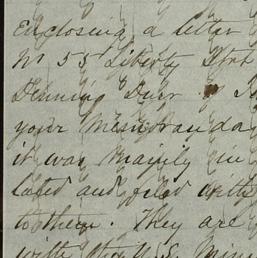 Enclosing a letter
No 55 Liberty Stret
Denning Duer
your memoranda
it was mainly in
lated and filed with
to them. They are
with the U.S. Min